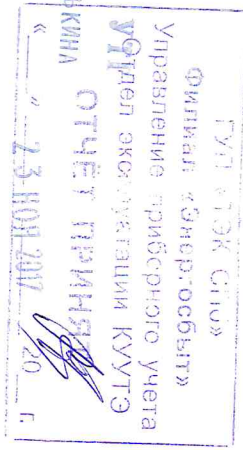 ГУП «ТЭК СПб»
Филиал «Энергосбыт»
Управление приборного учета
Отдел эксплуатации КУУТЭ
ОТЧЁТ ПРИНЯТ
« » 23 НОЯ 2017 20 г.